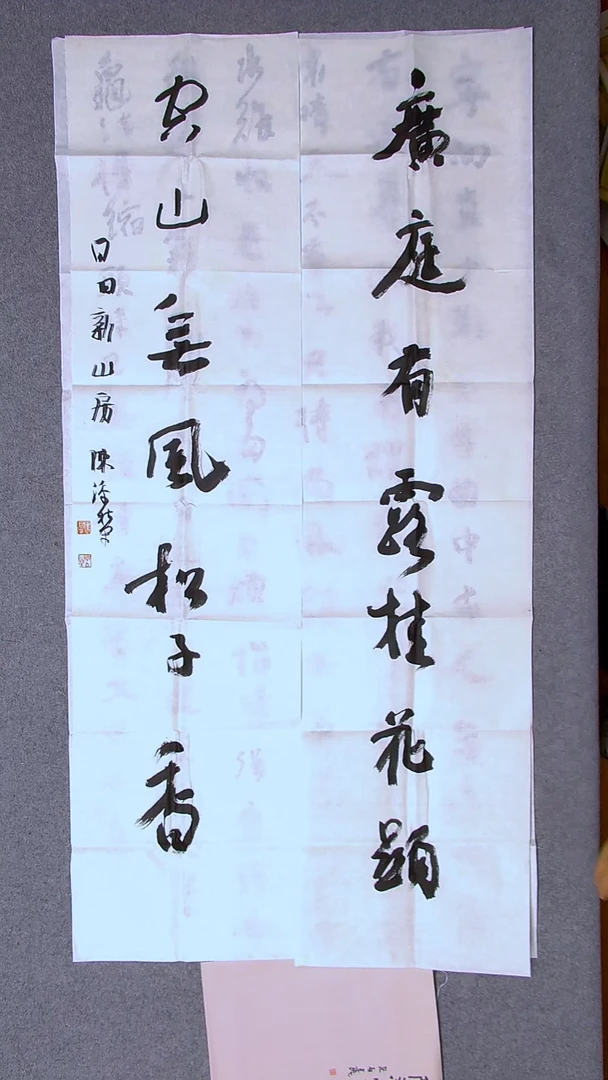 廣庭有露桂花顯
空山無風松子香
日日新山房 陳